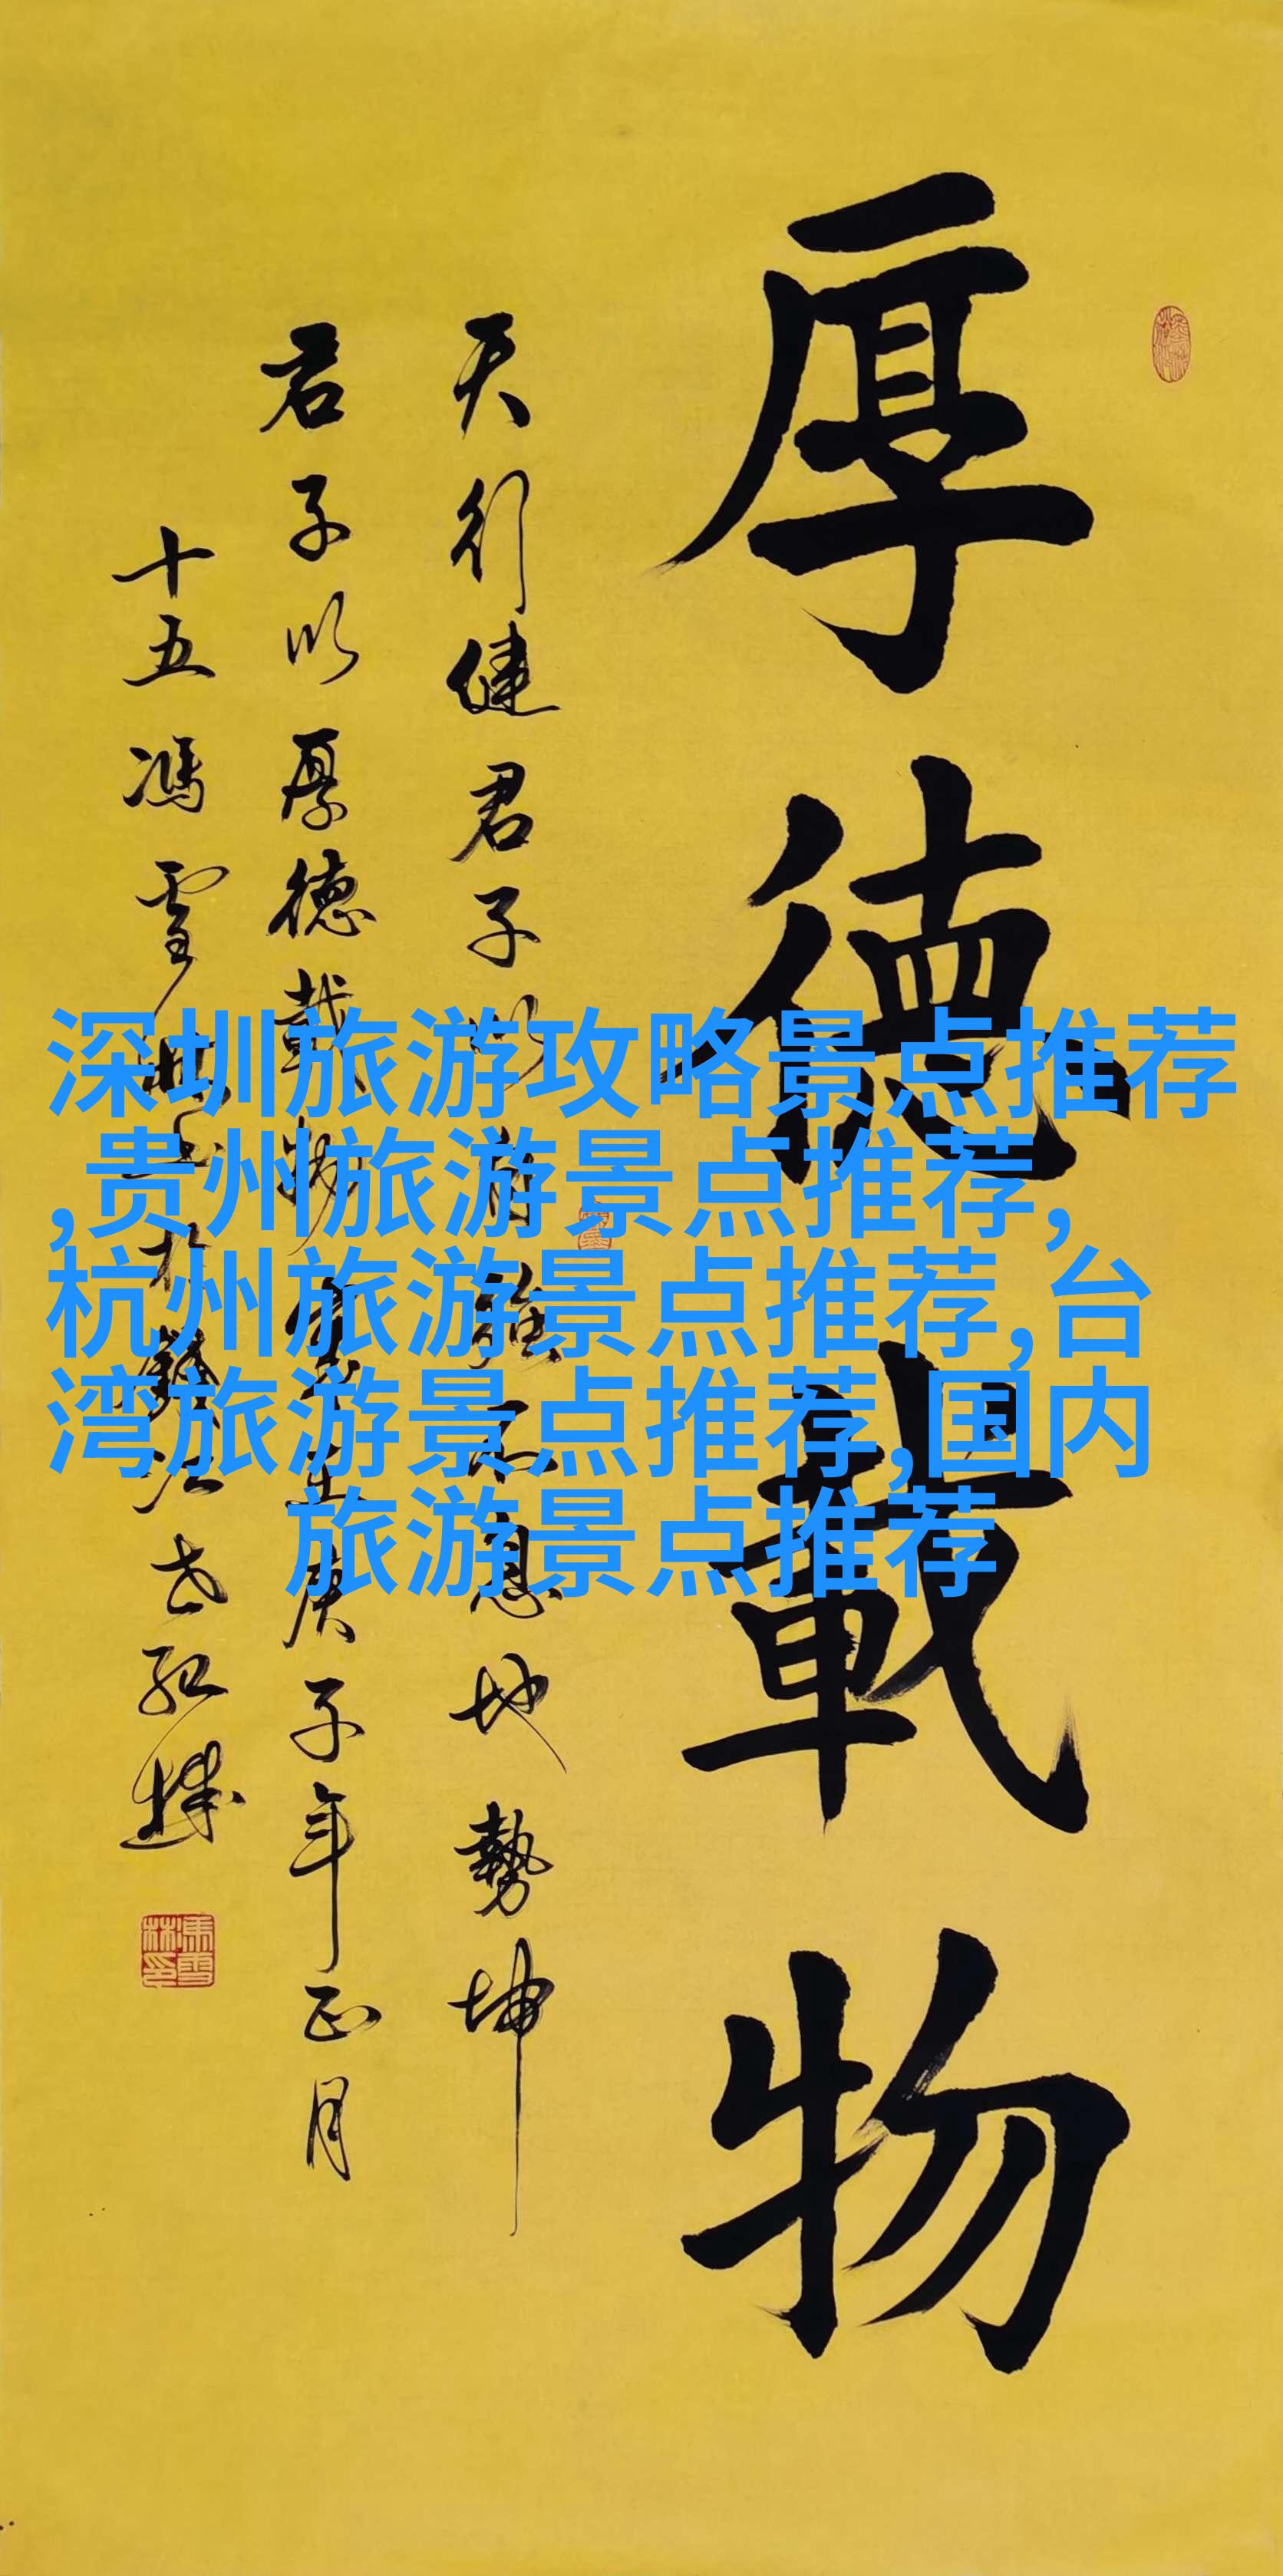 厚德載物
天行健君子以自強不息地勢坤
君子以厚德載物 庚子年正月
十五馮雪林
深圳旅游攻略景点推荐
,贵州旅游景点推荐,
杭州旅游景点推荐,台
湾旅游景点推荐,国内
旅游景点推荐
馮雪林印